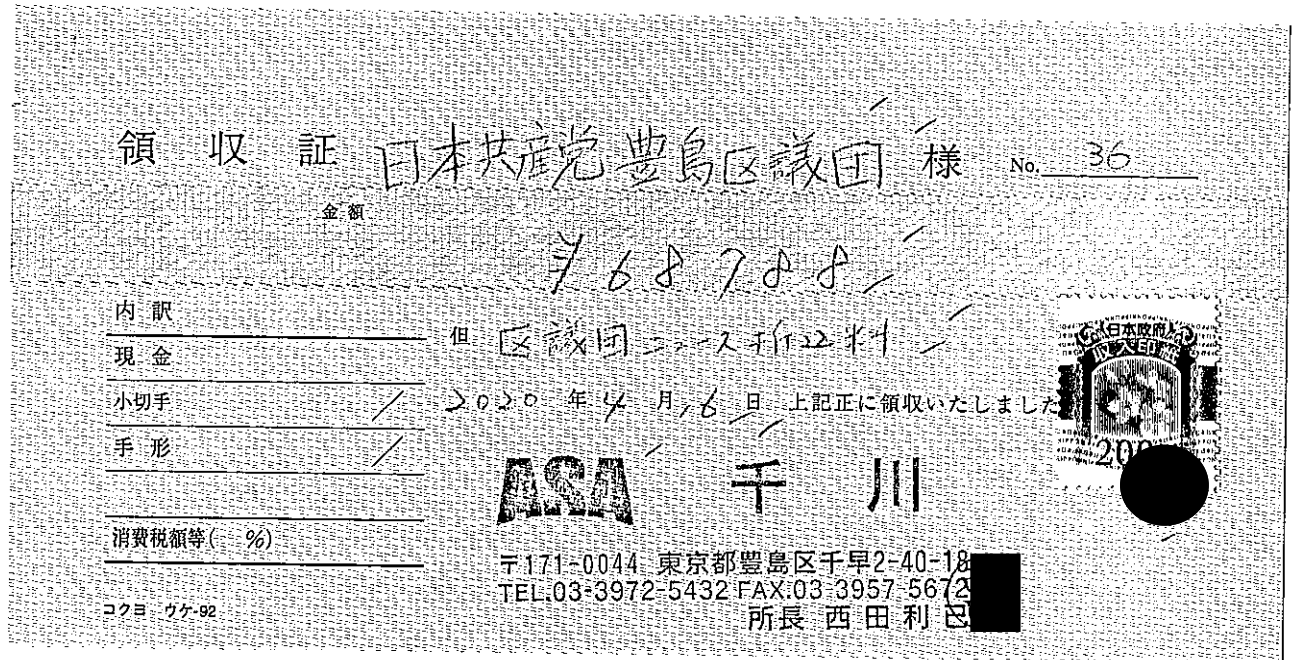 領収証 日本共産党豊島区議団 様 No. 36
金額
¥68788
内訳
現金
小切手
手形
消費税額等( %)
コクヨ ウケ-92
但 区議団ニュース折込料
2020年4月6日 上記正に領収いたしました
日本政府
収入印紙
200
ASA 千川
〒171-0044 東京都豊島区千早2-40-18
TEL.03-3972-5432 FAX.03-3957-5672
所長 西田利巳